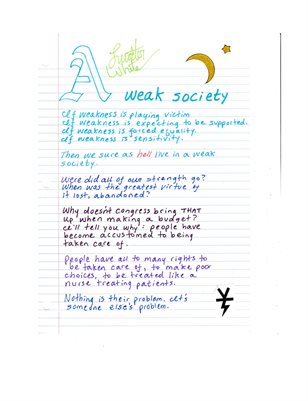 A weak society
If weakness is playing victim
If weakness is expecting to be supported.
If weakness is forced equality.
If weakness is sensitivity.
Then we sure as hell live in a weak
society.
Were did all of our strength go?
When was the greatest virtue of
it lost, abandoned?
Why doesn't congress bring THAT
up when making a budget?
I'll tell you why: people have
become accustomed to being
taken care of.
People have all to many rights to
be taken care of, to make poor
choices, to be treated like a
nurse treating patients.
Nothing is their problem. It's
someone else's problem.